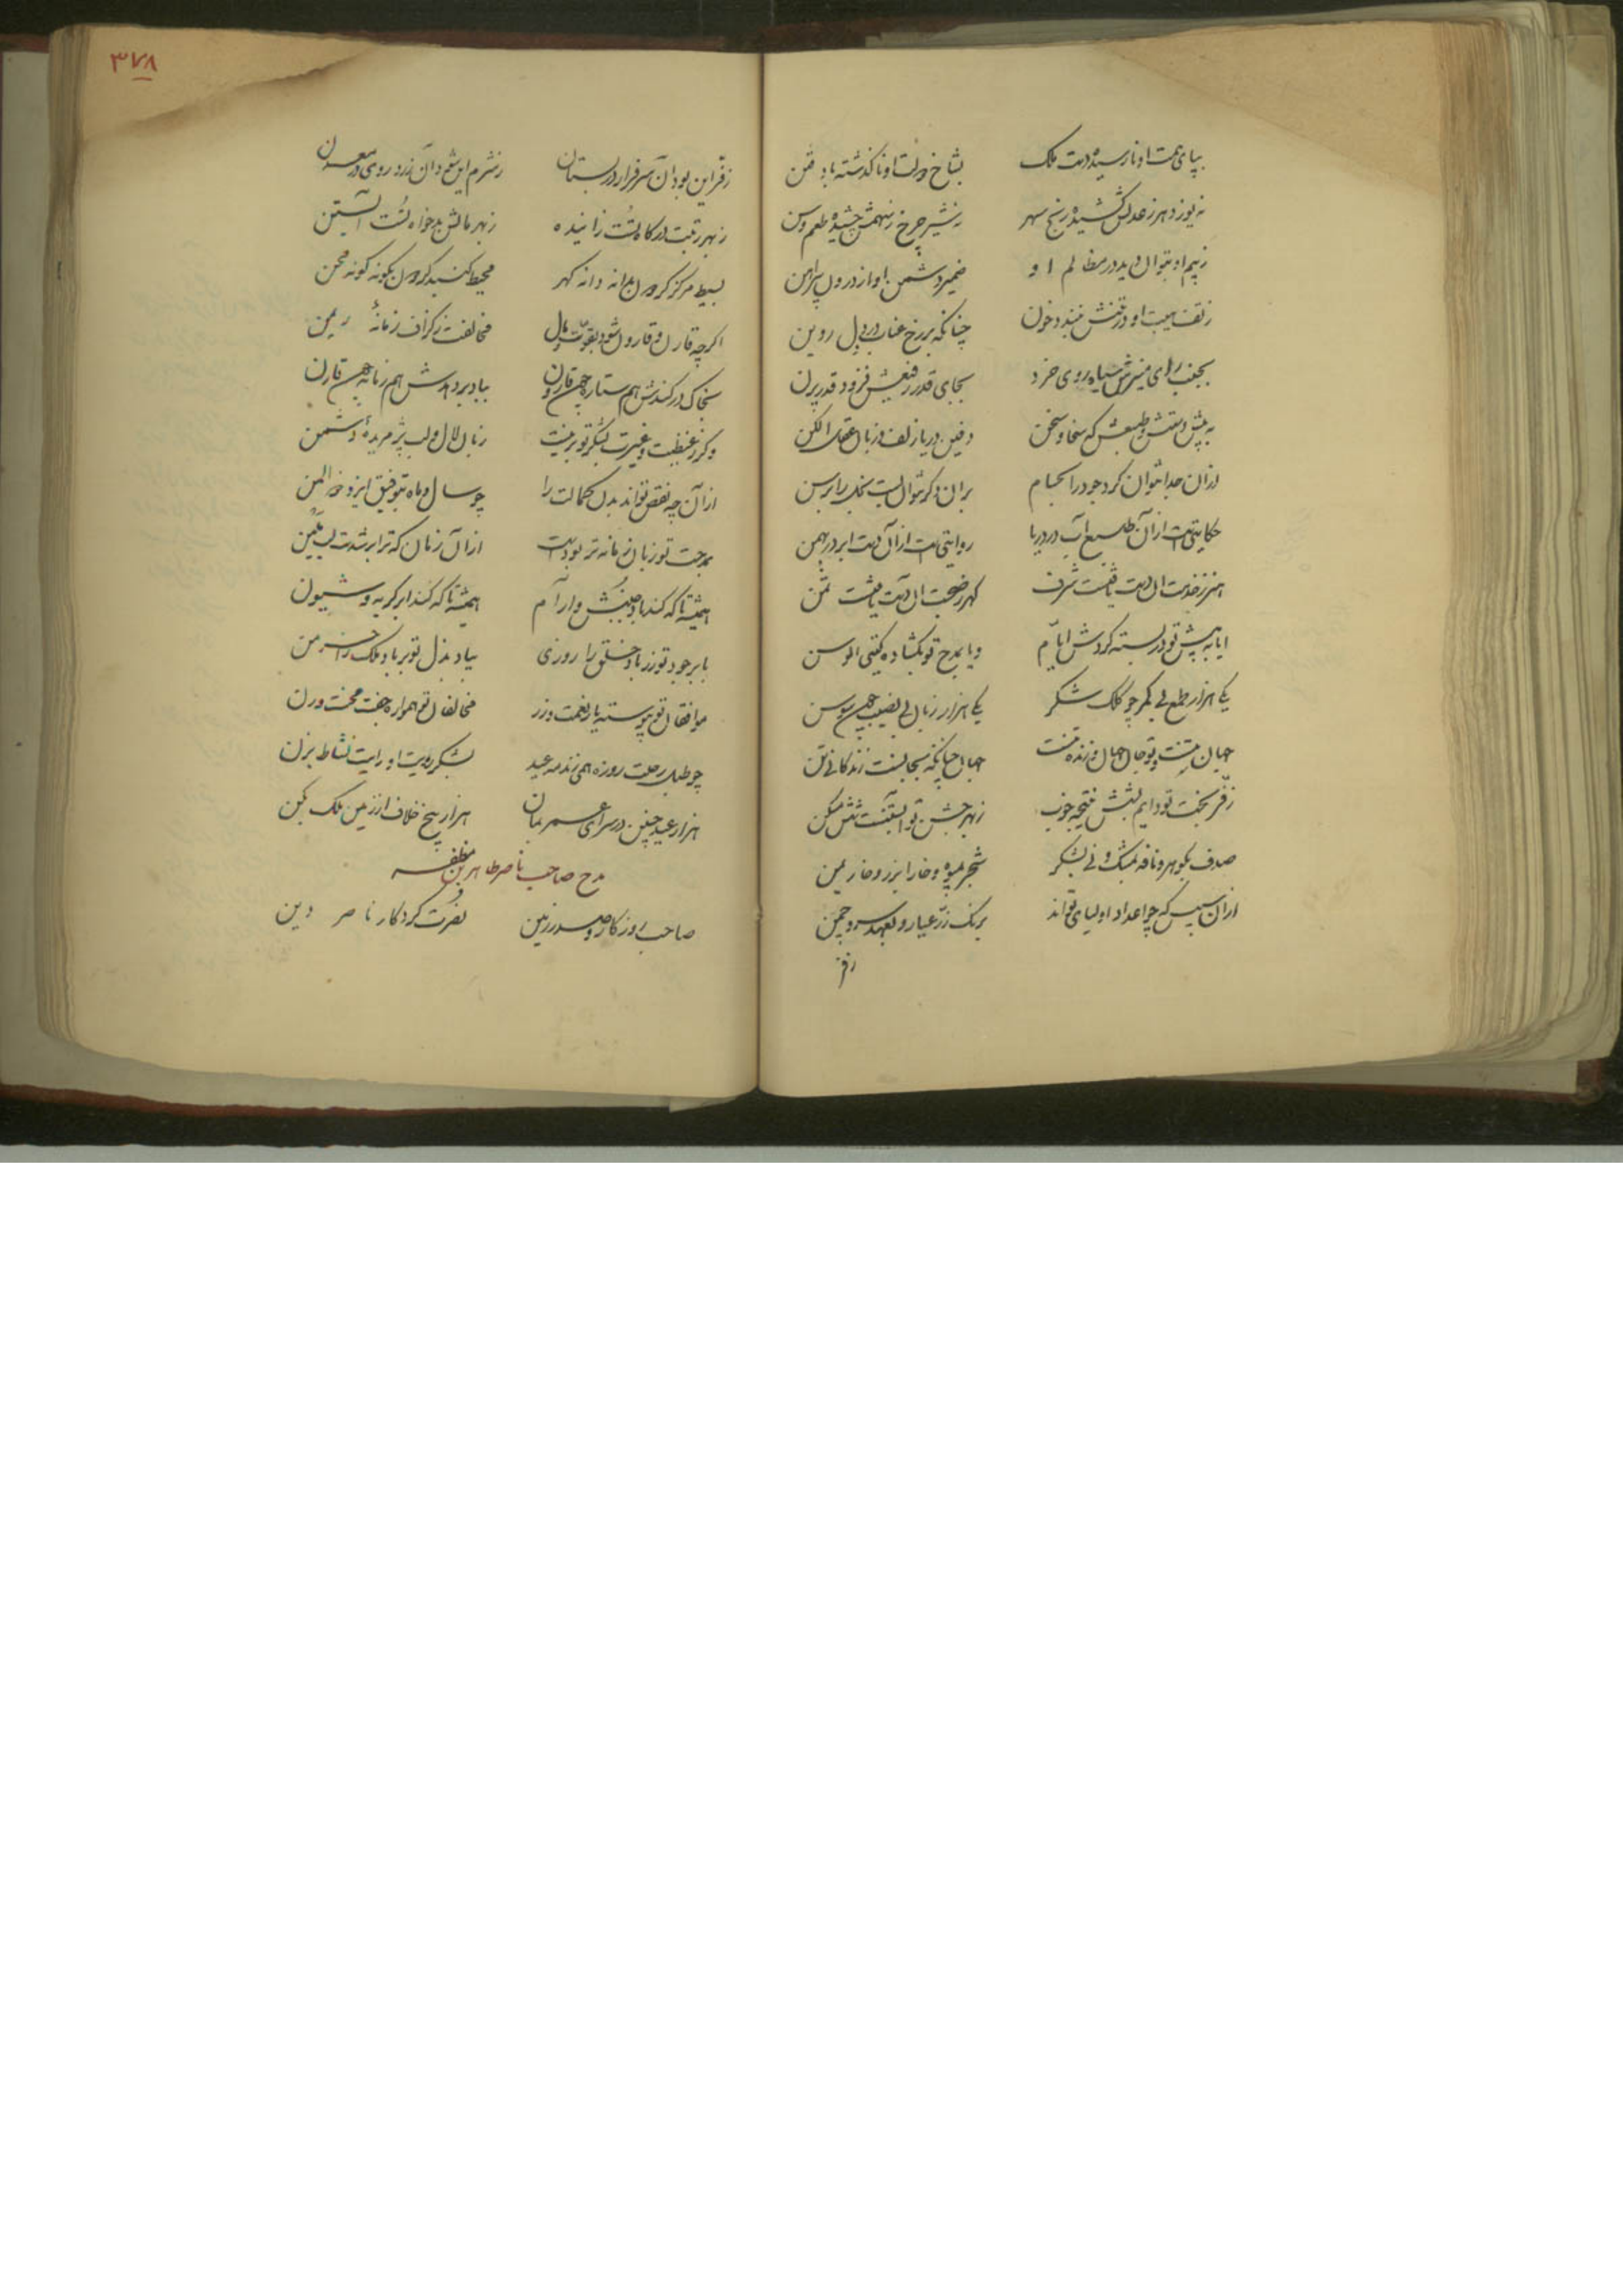 بپای همت او نارسیده دست ملک بشاخ دولت او ناگذشته باد فتن
نه یوز دهر ز عدلش کشیده رنج سهر نه شیر چرخ ز سهمش چشیده طعم وسن
ز بیم او بتوان دید در مظالم او ضمیر دشمن او از درون پیراهن
ز تف هیبت او در تنش ببندد خون چنانکه بر رخ عناب در دل روین
بجنب رای منیرش سیاه روی خرد بجای قدر رفیعش فرود قدر پرن
به پیش دستش و طبعش که سخا و سخن دفین دریا زلف و زبان عقل الکن
از آن جدا نتوان کرد جود را بحسام برین دگر نتوان بست بخل را برسن
حکایتی است از آن طبع آب در دریا روایتی است از آن دست ابر در بهمن
هنر ز خدمت آن دست یافتست شرف گهر ز صحبت آن دست یافتست ثمن
ایا به پیش تو در بسته گردش ایام و یا بمدح تو بگشاده گیتی الوسن
یکی هزار طمع بی کمر چو کلک شکر یکی هزار زبان بی نصیب چون سوسن
جهان تنست و تو جان جهان و زنده تنست جهان چنانکه بجانست زندگانی تن
ز فر بخت تو دایم بشش نتیجه خوب ز بهر جشن تو آبستنست شش مسکن
صدف بگوهر و نافه بمشک و نی بشکر شجر بمیوه و خارا بزر و خار بمن
از آن سپس که چو اعداد اولیای تواند برنگ زر عیار و بعهد سرو چمن
ز فر
۳۷۸
ز فر این بود آن سرفراز در بستان ز شرم این شده آن زرد روی در معدن
ز بهر رتبت درگاه تست زاینده ز بهر مالش بدخواه تست آبستن
بسیط مرکز گردون بدانه دانه گهر محیط گنبد گردون بگونه گونه محن
اگرچه قارن و قارون شود بقوت و مال مخالفت ز گزاف زمانه ریمن
بخاک درکندش هم ستاره چون قارون بباد بردهدش هم زمانه چون قارن
وگر ز غبطت و غیرت بشکر تو برنیست زبان لال و لب پژمریده دشمن
از آن چه نقص تواند بدن کمالت را چو سال و ماه بتوفیق ایزد ذوالمن
بمدحت تو زبان زمانه تر بودست از آن زمان که ترا بر شدست لب بلبن
همیشه تا که کند باد جنبش و آرام همیشه تا که کند ابر گریه و شیون
بابر جود تو در باد خلق را روزی بباد بذل تو بر باد ملک را خرمن
موافقان تو پیوسته یار نعمت و زر مخالفان تو همواره جفت محنت و رن
چو طبل رحلت روزه همی زند مه عید بشکر رویت او رایت نشاط بزن
هزار عید چنین در سرای عمر بمان هزار بیخ خلاف از زمین ملک بکن
مدح صاحب ناصرالدین طاهر بن مظفر
صاحب روزگار و صدر زمین نصرت کردگار ناصر دین